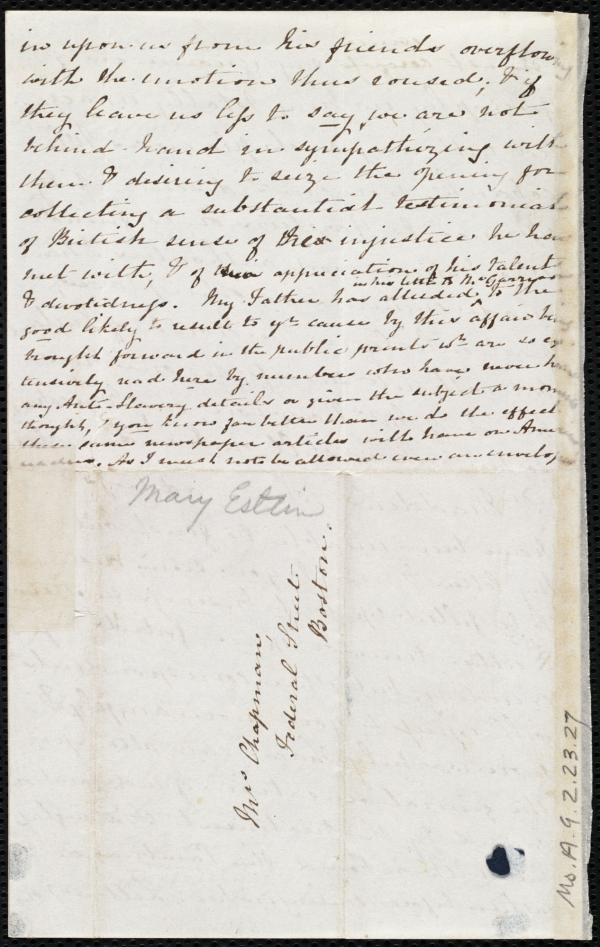 in upon us from his friends overflow
with the emotion thus roused; & if
they leave us less to say, we are not
behind-hand in sympathizing with
them & desiring to seize the opening for
collecting a substantial testimonial
of British sense of the injustice he has
met with, & of appreciation of his talent
in his letter to Mr Garrison
& devotedness. My Father has alluded ^ to the
good likely to result to yr. cause by this affair being
brought forward in the public prints wh. are so ex
tensively read here by numbers who have never had
any Anti-Slavery details or given the subject a moment's
thought, & you know far better than we do the effect
these same newspaper articles will have on American
readers. As I must not be allowed even an envelop
Mary Estlin
Mrs Chapman,
Federal Street.
Boston.
Ms. A. 9. 2. 23. 27